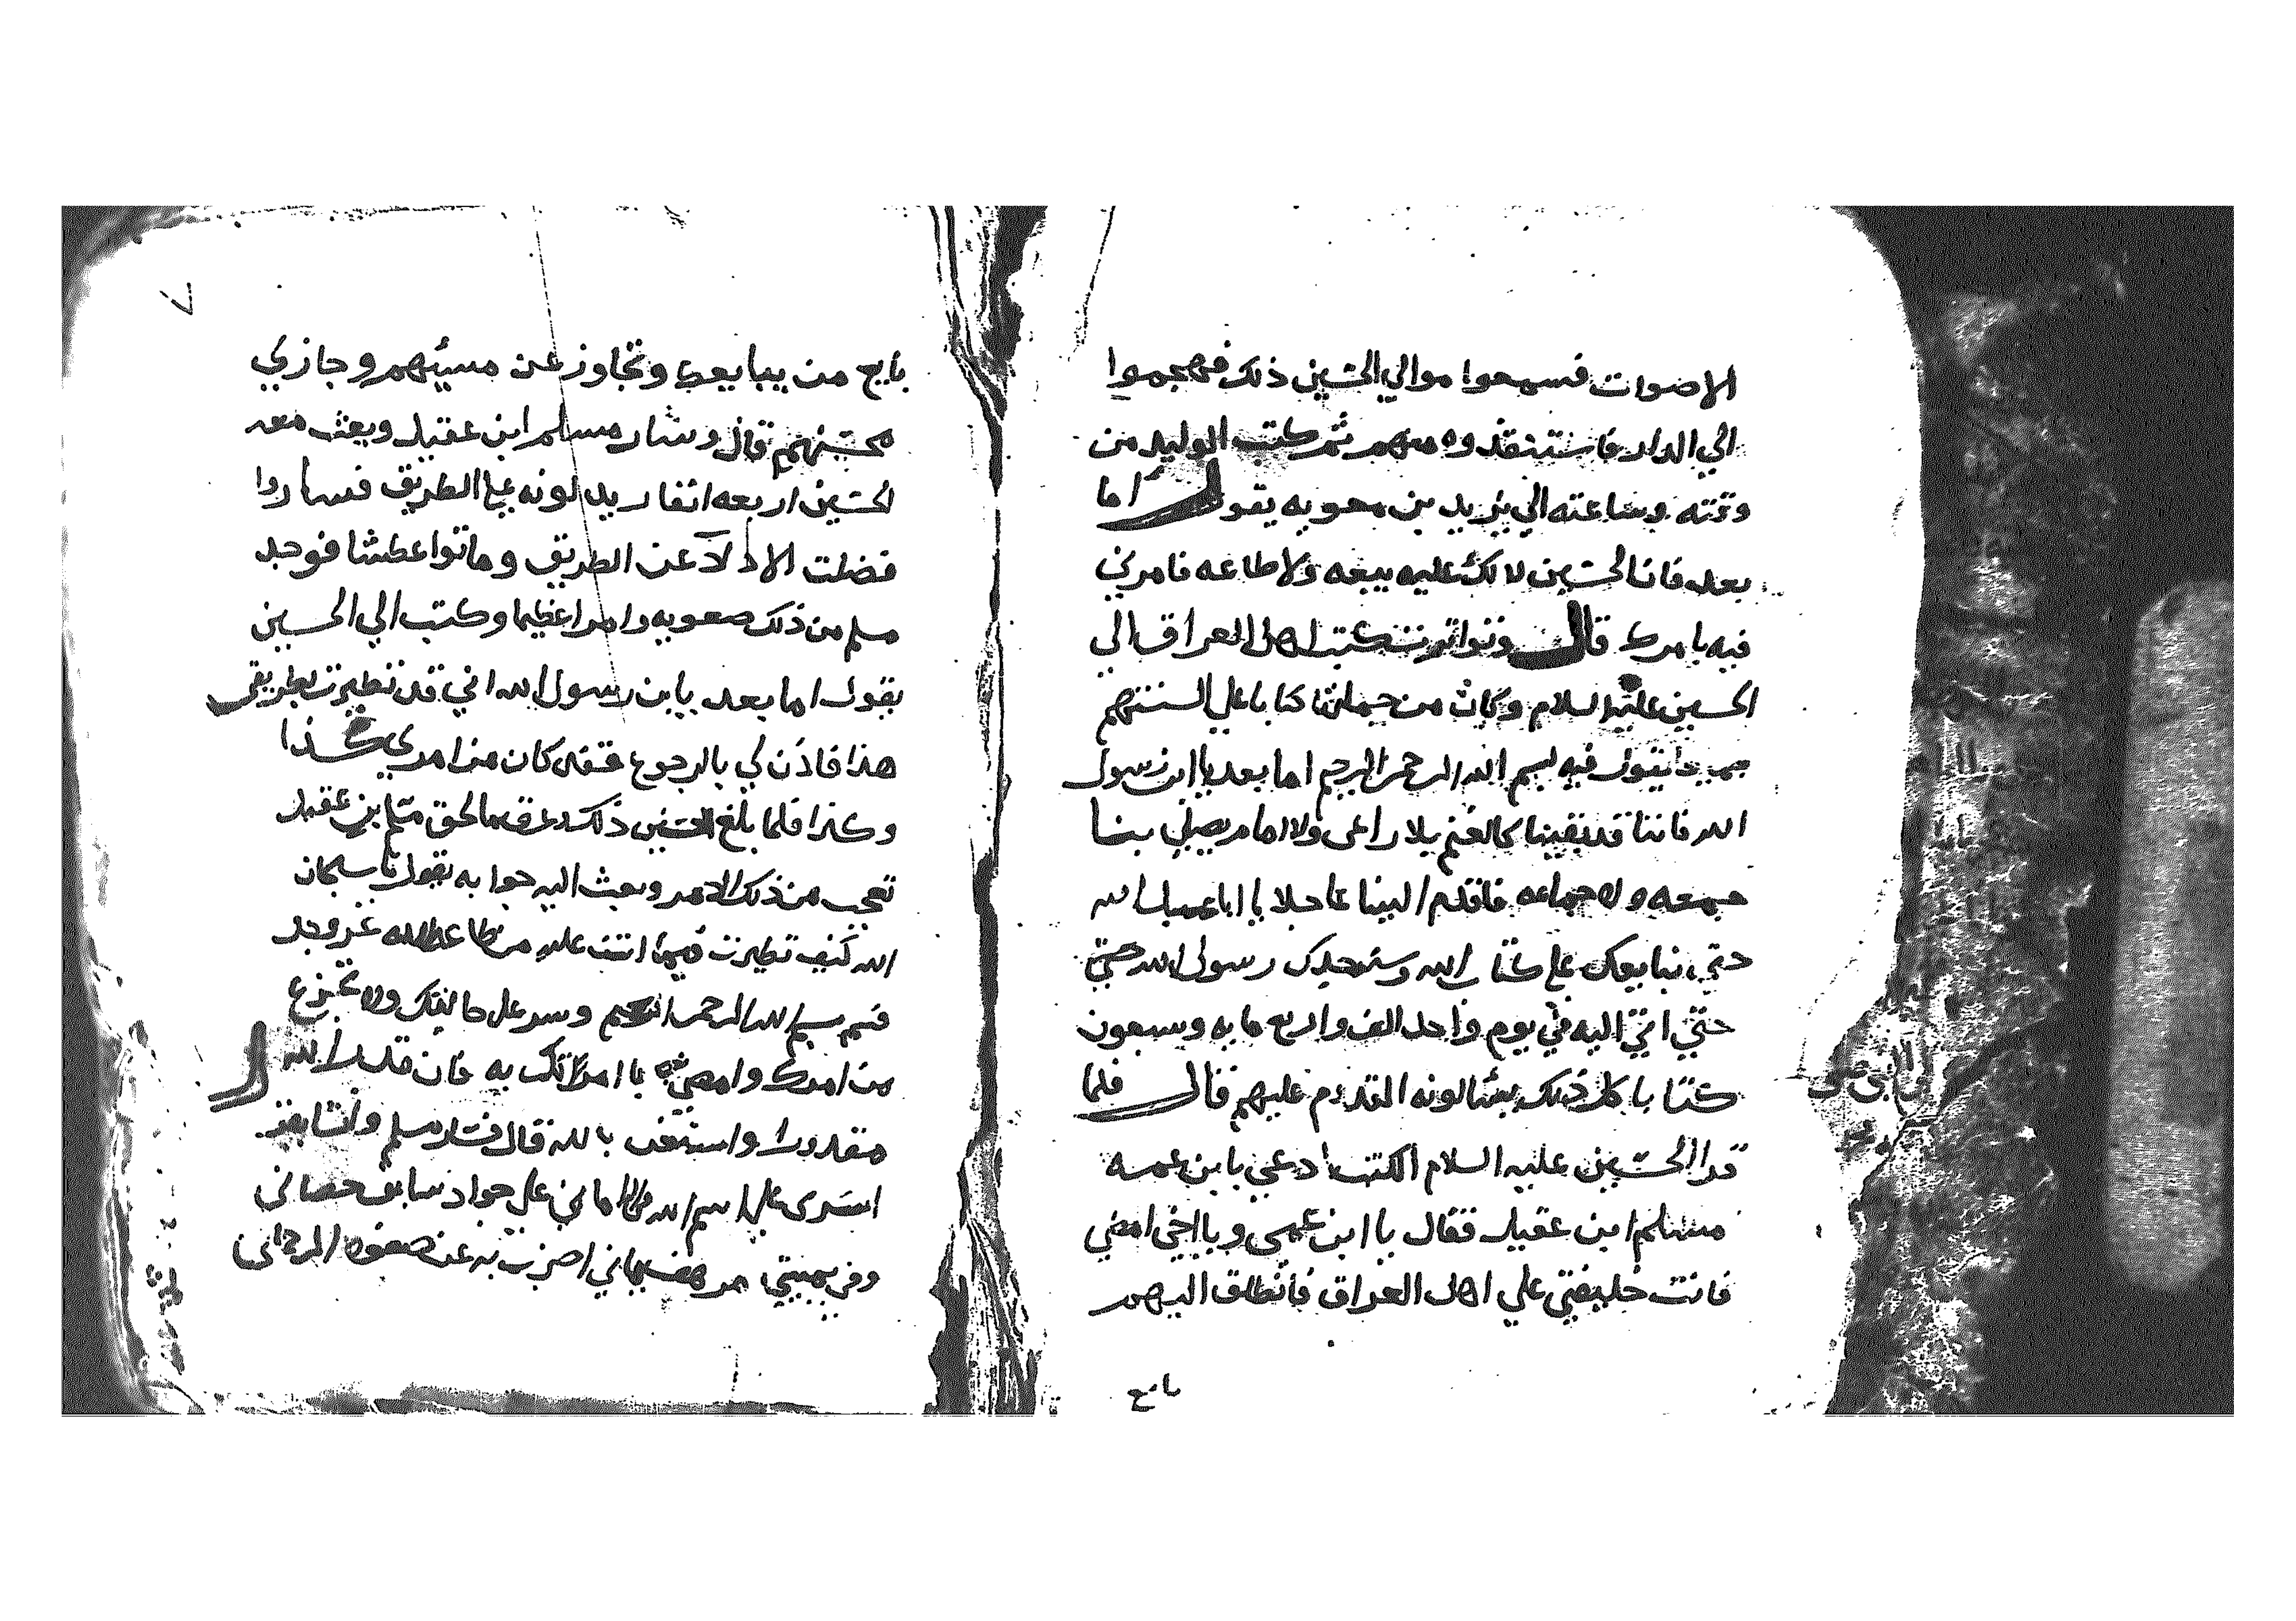 الاصوات فسمعوا موالي الحسين ذلك فهجموا
الي الدار فاستنقذوه منهم ثم كتب الوليد من
وقته وساعته الي يزيد بن معويه يقول اما
بعد فان الحسين لا لك عليه بيعه ولا طاعه فامرني
فيه بامرك قال وتواترت كتب اهل العراق الي
الحسين عليه السلام وكان من جملتها كتابا علي السنتهم
يقول فيه بسم الله الرحمن الرحيم اما بعد يا ابن رسول
الله فاننا قد بقينا كالغنم بلا راعي ولا امام يصلي بنا
جمعه ولا جماعه فاقدم الينا عاجلا يا ابا عبدالله
حتي نبايعك علي كتاب الله وسنه جدك رسول الله حتي
حتي اتي اليه في يوم واحد الف واربع مايه وسبعون
كتابا كل ذلك يسالونه القدوم عليهم قال فلما
قرا الحسين عليه السلام الكتب ادعي بابن عمه
مسلم ابن عقيل فقال يا ابن عمي ويا اخي امضي
فانت خليفتي علي اهل العراق فانطلق اليهم
بايع
٧
بايع من يبايعك وتجاوز عن مسيئهم وجازي
محسنهم قال وسار مسلم ابن عقيل وبعث معه
الحسين اربعه انفار يدلونه علي الطريق فساروا
فضلت الادلا عن الطريق وماتوا عطشا فوجد
مسلم من ذلك صعوبه وامرا عظيما وكتب الي الحسين
يقول اما بعد يا بن رسول الله اني قد تطيرت بطريقي
هذا فاذن لي بالرجوع فقد كان من امري كذا
وكذا فلما بلغ الحسين ذلك وعرف ما لحق مسلم بن عقيل
تعجب من ذلك الامر وبعث اليه جوابه يقول يا سبحان
الله كيف تطيرت فيما انت عليه من طاعة الله عز وجل
قسم بسم الله الرحمن الرحيم وسر علي حالتك ولا تجزع
من امرك وامضي يا امرتك به فان قدر الله
مقدورا واستعن بالله قال فسار مسلم وانشا يقول
اسري علي اسم الله علي جواد سابق حصاني
وفي يميني اضرب به عن صفوه الرحماني